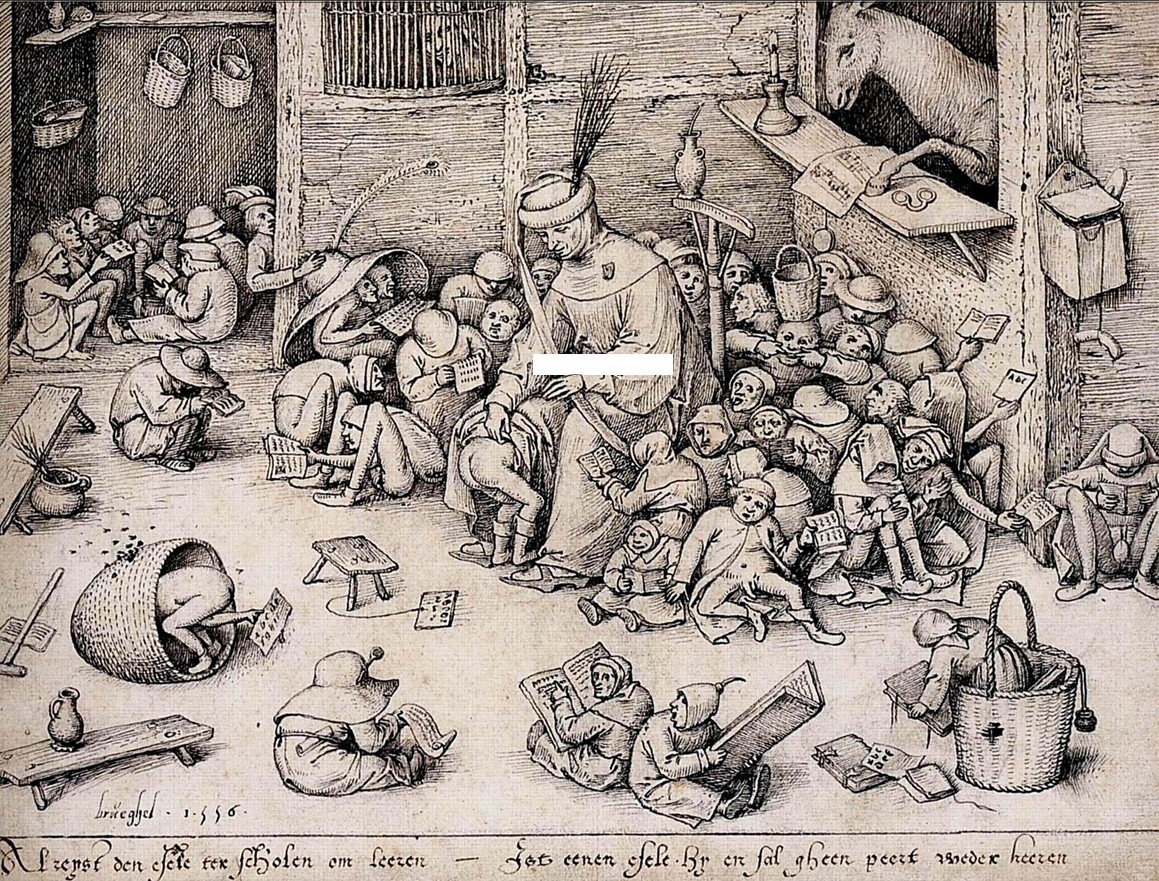 ABC
brueghel · 1556 ·
Al reyst den esele ter scholen om leeren — Ist eenen esele · hy en sal gheen peert weder keeren